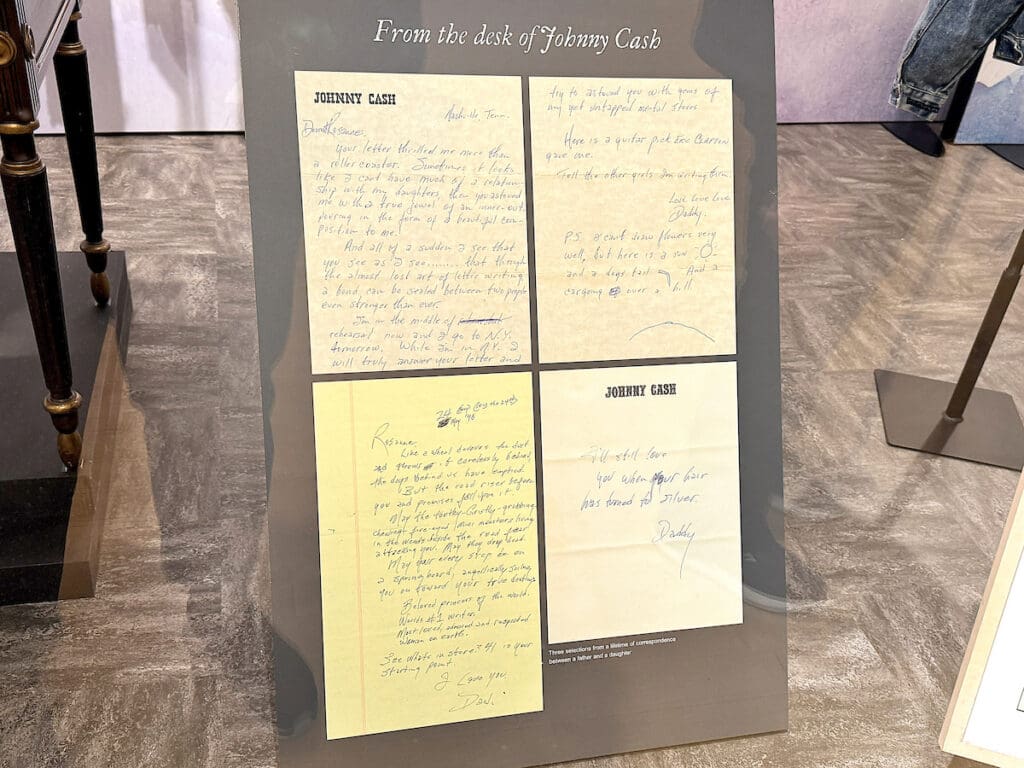 From the desk of Johnny Cash
JOHNNY CASH
Nashville, Tenn.
Your letter thrilled me more than
a roller coaster. Sometimes it looks
like I can't have much of a relation-
ship with my daughters, then you astound
me with a true jewel of an inner-out
pouring in the form of a beautiful com-
position to me!
And all of a sudden I see that
you see as I see......... that through
the almost lost art of letter writing
a bond can be sealed between two people
even stronger than ever.
I'm in the middle of
rehearsal now and I go to N.Y.
tomorrow. While I'm in N.Y. I
will truly answer your letter and
try to astound you with gems of
my yet untapped mental stores
Here is a guitar pick Eric Clapton
gave me.
Tell the other girls I'm writing them.
Love Love Love
Daddy.
P.S. I can't draw flowers very
well, but here is a sun
and a dogs tail And a
car going over a hill
24
May
Rosanne,
Like a wheel the dust
and throws it carelessly behind,
the days behind us have emptied.
But the road rises before
you and promises fall upon it!
May the
fire-eyed monsters living
in the weeds beside the road
attacking you. May they drop dead.
May your every step be on
a springboard, angelically
you on toward your true destiny
Beloved princess of the world.
Worlds #1 writer.
Most loved, admired and respected
Woman on earth.
See whats in store? is your
starting point.
I Love you
Dad.
JOHNNY CASH
I'll still love
you when your hair
has turned to silver.
Daddy
Three selections from a lifetime of correspondence
between a father and a daughter